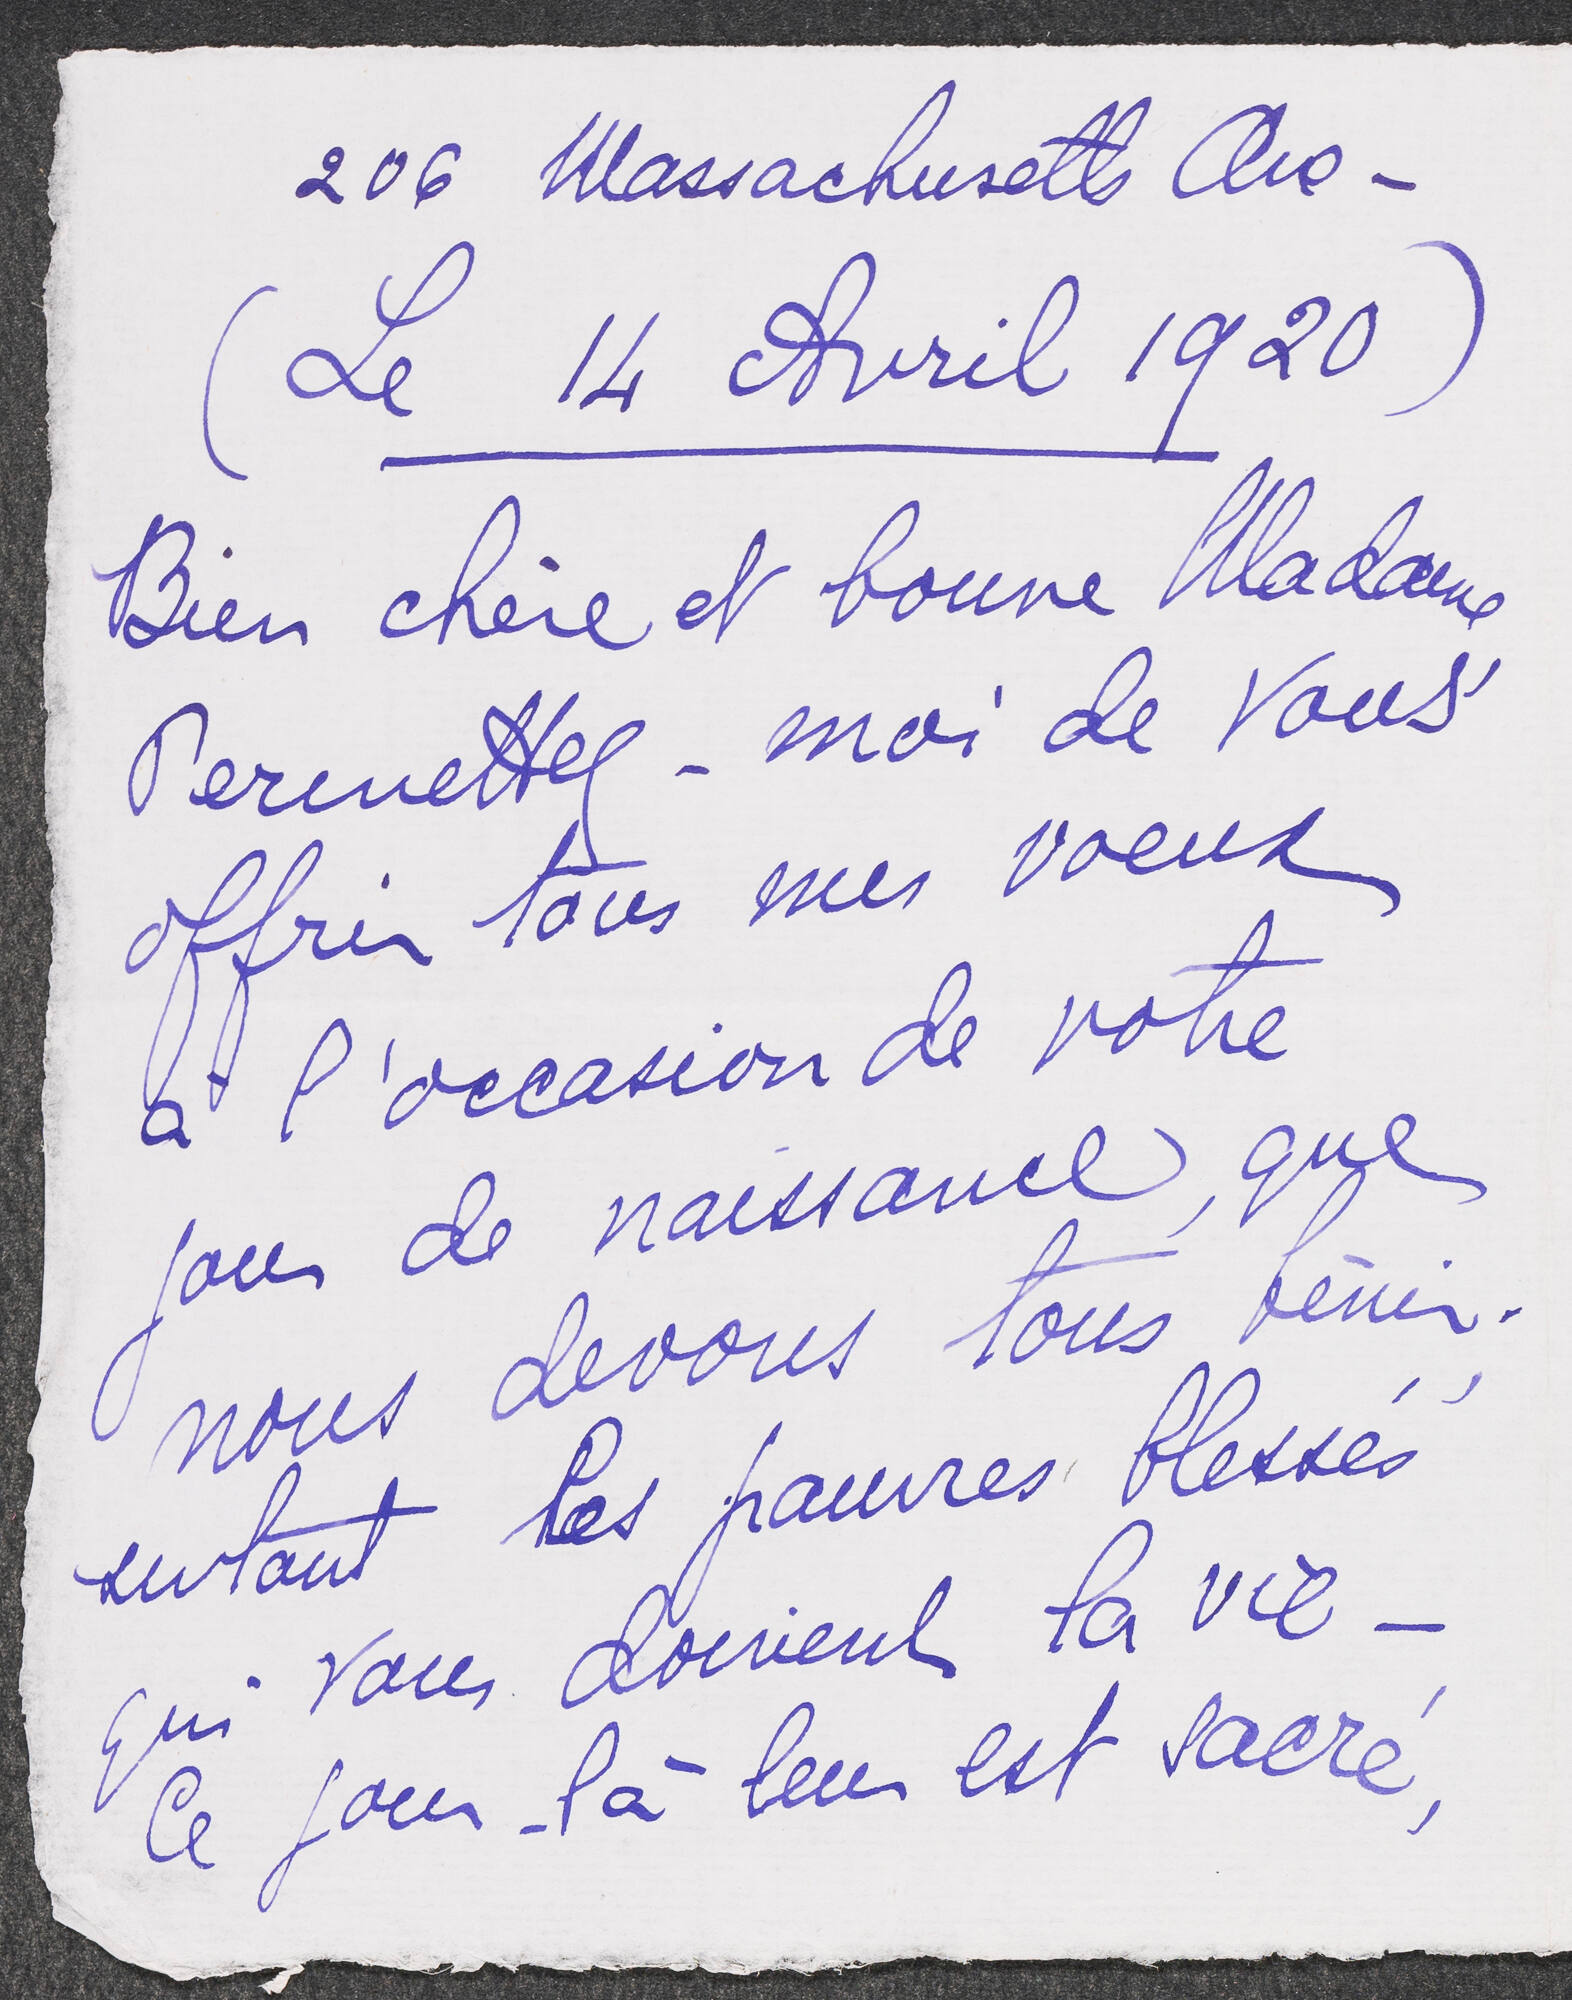 206 Massachusetts Ave -
(Le 14 Avril 1920)
Bien chère et bonne Madame
Permettez - moi de vous
offrir tous mes voeux
à l'occasion de votre
jour de naissance, que
nous devons tous bénir,
surtout les pauvres blessés
qui vous doivent la vie -
Ce jour - là leur est sacré,